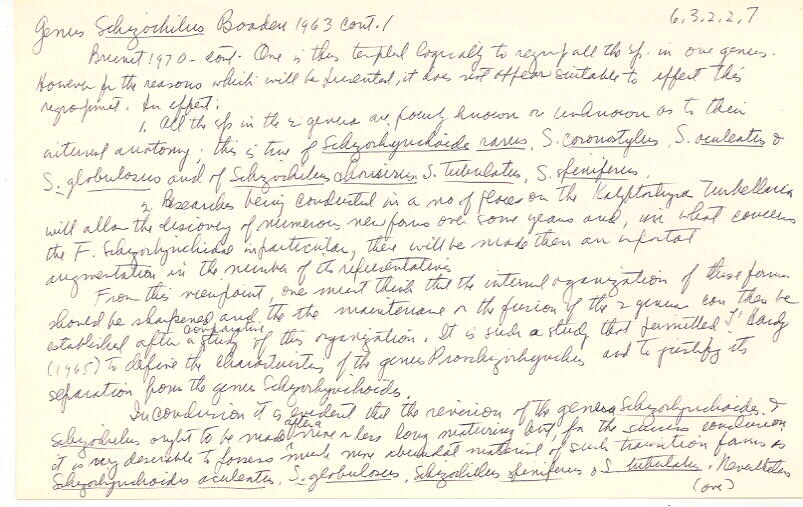 Genus Schizochilus Boaden 1963 cont. / 6.3.2.2.7
Brunet 1970 - cont. One is thus tempted logically to regroup all the sp. in one genus.
However for the reasons which will be presented, it does not appear suitable to effect this
regroupment. In effect:
1. All the sp in the 2 genera are poorly known or unknown as to their
internal anatomy; this is true of Schizorhynchoides rarus, S. coronostylus, S. aculeatus &
S. globulosus and of Schizochilus choriurus, S. tubulatus, S. speniferus.
2. Researches being conducted in a no of places on the Kalyptorhyna Turbellaria
will allow the discovery of numerous new forms over some years and, in what concerns
the F. Schizorhynchidae in particular, there will be made then an important
augmentation in the number of its representatives
From this viewpoint, one must think that the internal organization of these forms
should be sharpened and the the maintenance or the fusion of the 2 genera can then be
established after a comparative study of this organization. It is such a study that permitted L'Hardy
(1965) to define the characteristics of the genus Proschizorhynchus and to justify its
separation from the genus Schizorhynchoides.
In conclusion it is evident that the revision of the genera Schizorhynchoides &
Schizochilus ought to be made after a more or less long maturing but, for the conclusion
it is very desirable to possess much more abundant material of such transition forms as
Schizorhynchoides aculeatus, S. globulosus, Schizochilus speniferus & S. tubulatus. Nevertheless
(over)